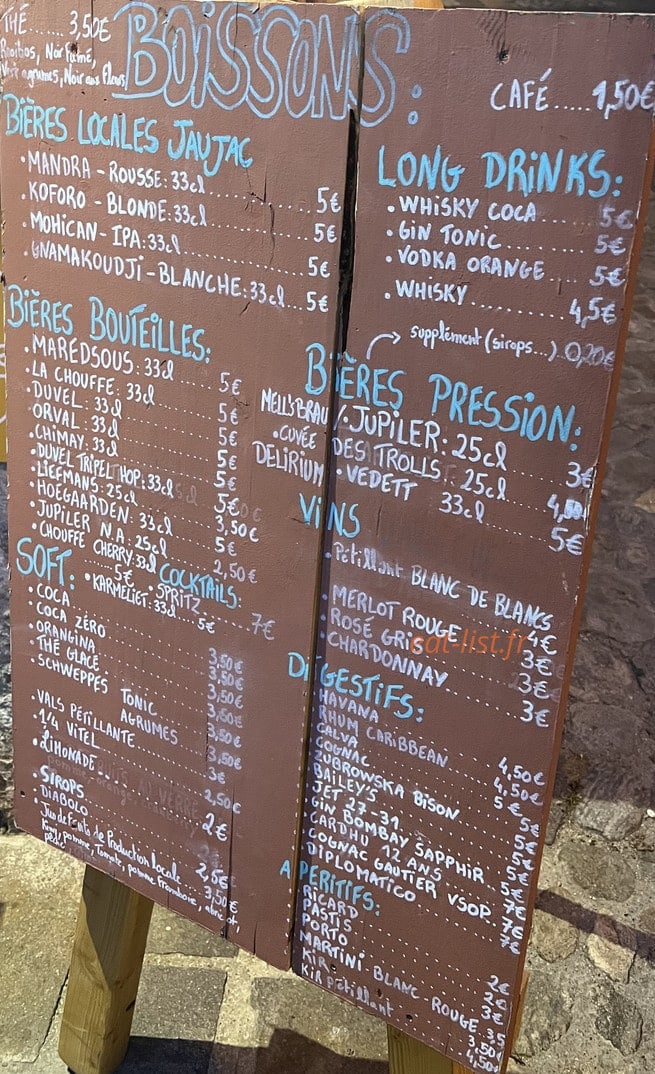 THÉ...... 3,50€
Rooibos, Noir fumé,
Vert agrumes, Noir aux fleurs
BOISSONS:
CAFÉ..... 1,50€
BIÈRES LOCALES JAUJAC
• MANDRA - ROUSSE: 33cl........ 5€
• KOFORO - BLONDE: 33cl........ 5€
• MOHICAN - IPA: 33cl........ 5€
• GNAMAKOUDJI - BLANCHE: 33cl... 5€
BIÈRES BOUTEILLES:
• MAREDSOUS: 33cl........ 5€
• LA CHOUFFE: 33cl........ 5€
• DUVEL: 33cl........ 5€
• ORVAL: 33cl........ 5€
• CHIMAY: 33cl........ 5€
• DUVEL TRIPEL HOP: 33cl
• LIEFMANS: 25cl........ 3,50€
• HOEGAARDEN: 33cl........ 5€
• JUPILER N.A: 25cl........ 2,50€
• CHOUFFE CHERRY: 33cl
........ 5€
• KARMELIET: 33cl........ 5€
COCKTAILS:
• SPRITZ........ 7€
SOFT:
• COCA........ 3,50€
• COCA ZÉRO........ 3,50€
• ORANGINA........ 3,50€
• THÉ GLACÉ........ 3,50€
• SCHWEPPES TONIC
AGRUMES........ 3,50€
• VALS PÉTILLANTE........ 3€
• 1/4 VITEL........ 2,50€
• LIMONADE...
• SIROPS........ 2€
• DIABOLO........ 2,5€
• Jus de fruits de Production Locale... 3,50€
pomme, tomate, pomme framboise, abricot,
pêche
LONG DRINKS:
• WHISKY COCA........ 5€
• GIN TONIC........ 5€
• VODKA ORANGE........ 5€
• WHISKY........ 4,5€
supplément (sirops...) 0,20€
BIÈRES PRESSION:
MELL'S BRAU / • JUPILER: 25cl........ 3€
• CUVÉE DES TROLLS 25cl........
DELIRIUM • VEDETT 33cl........ 5€
VINS
• Pétillant BLANC DE BLANCS
........ 4€
• MERLOT ROUGE........ 3€
• ROSÉ GRIS........ 3€
• CHARDONNAY........ 3€
cat-list.fr
DIGESTIFS:
HAVANA........ 4,50€
RHUM CARIBBEAN........ 4,50€
CALVA........ 5€
COGNAC........ 5€
ZUBROWSKA BISON........ 5€
BAILEY'S........ 5€
JET 27-31........ 5€
GIN BOMBAY SAPPHIR........ 5€
CARDHU 12 ANS........ 7€
COGNAC GAUTIER VSOP........ 7€
DIPLOMATICO........ 7€
APERITIFS:
RICARD........ 2€
PASTIS........ 2€
PORTO........ 3€
MARTINI BLANC - ROUGE 3,5
KIR........ 3,50€
KIR pétillant........ 4,50€